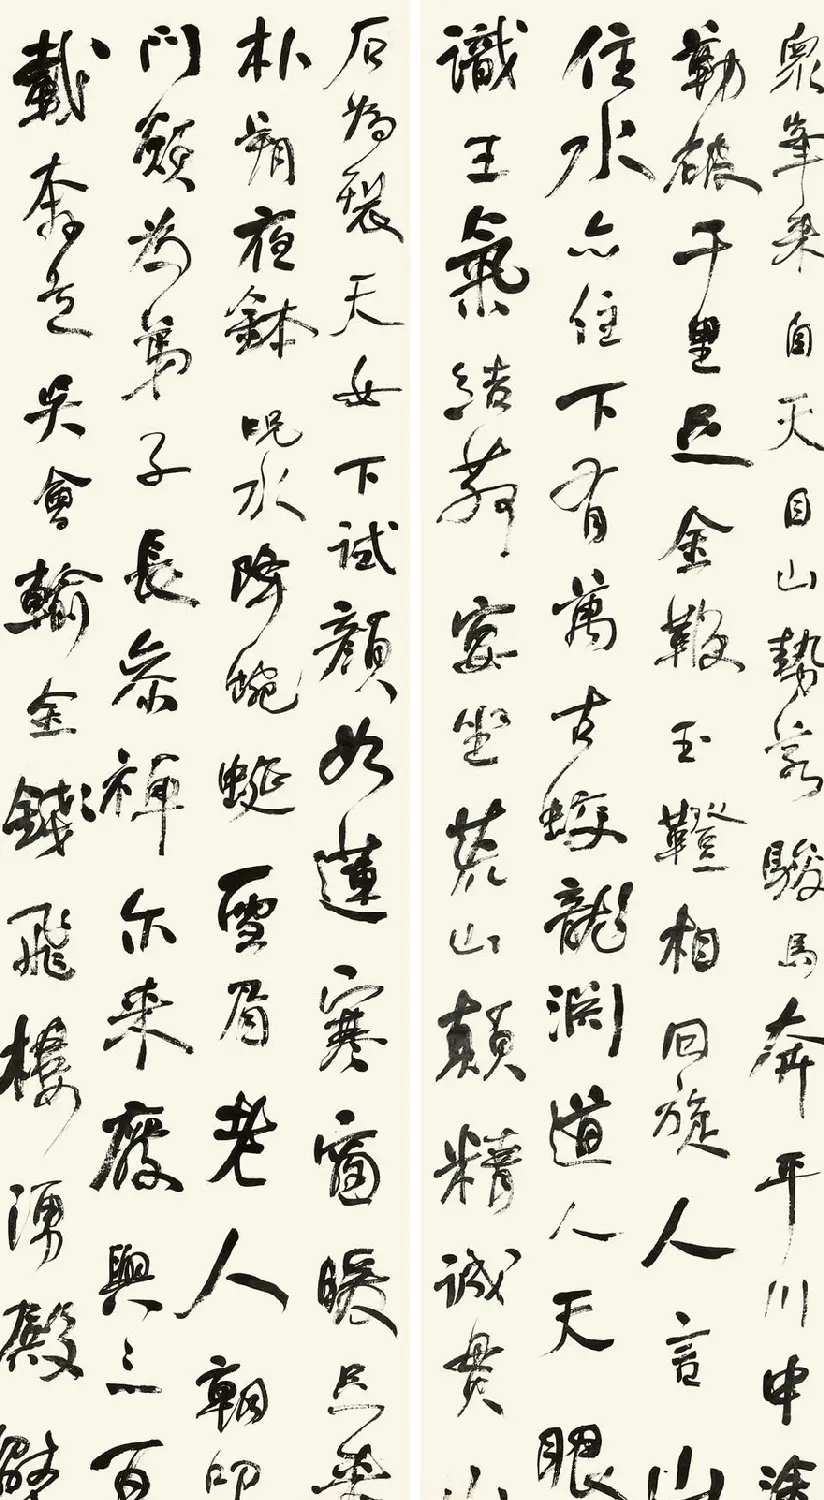 眾峯来自天目山勢若駿馬奔平川中途
勒破千里足金鞭玉鐙相回旋人言山
住水亦住下有萬古蛟龍淵道人天眼
識王氣結茅宴坐荒山顛精誠貫山
石為裂天女下試顏如蓮寒窗暖足来
朴朔夜鉢呪水降蜿蜒雪眉老人朝叩
門願為弟子長參禪尔来廢興三百
載奔走吳會輸金錢飛樓湧殿